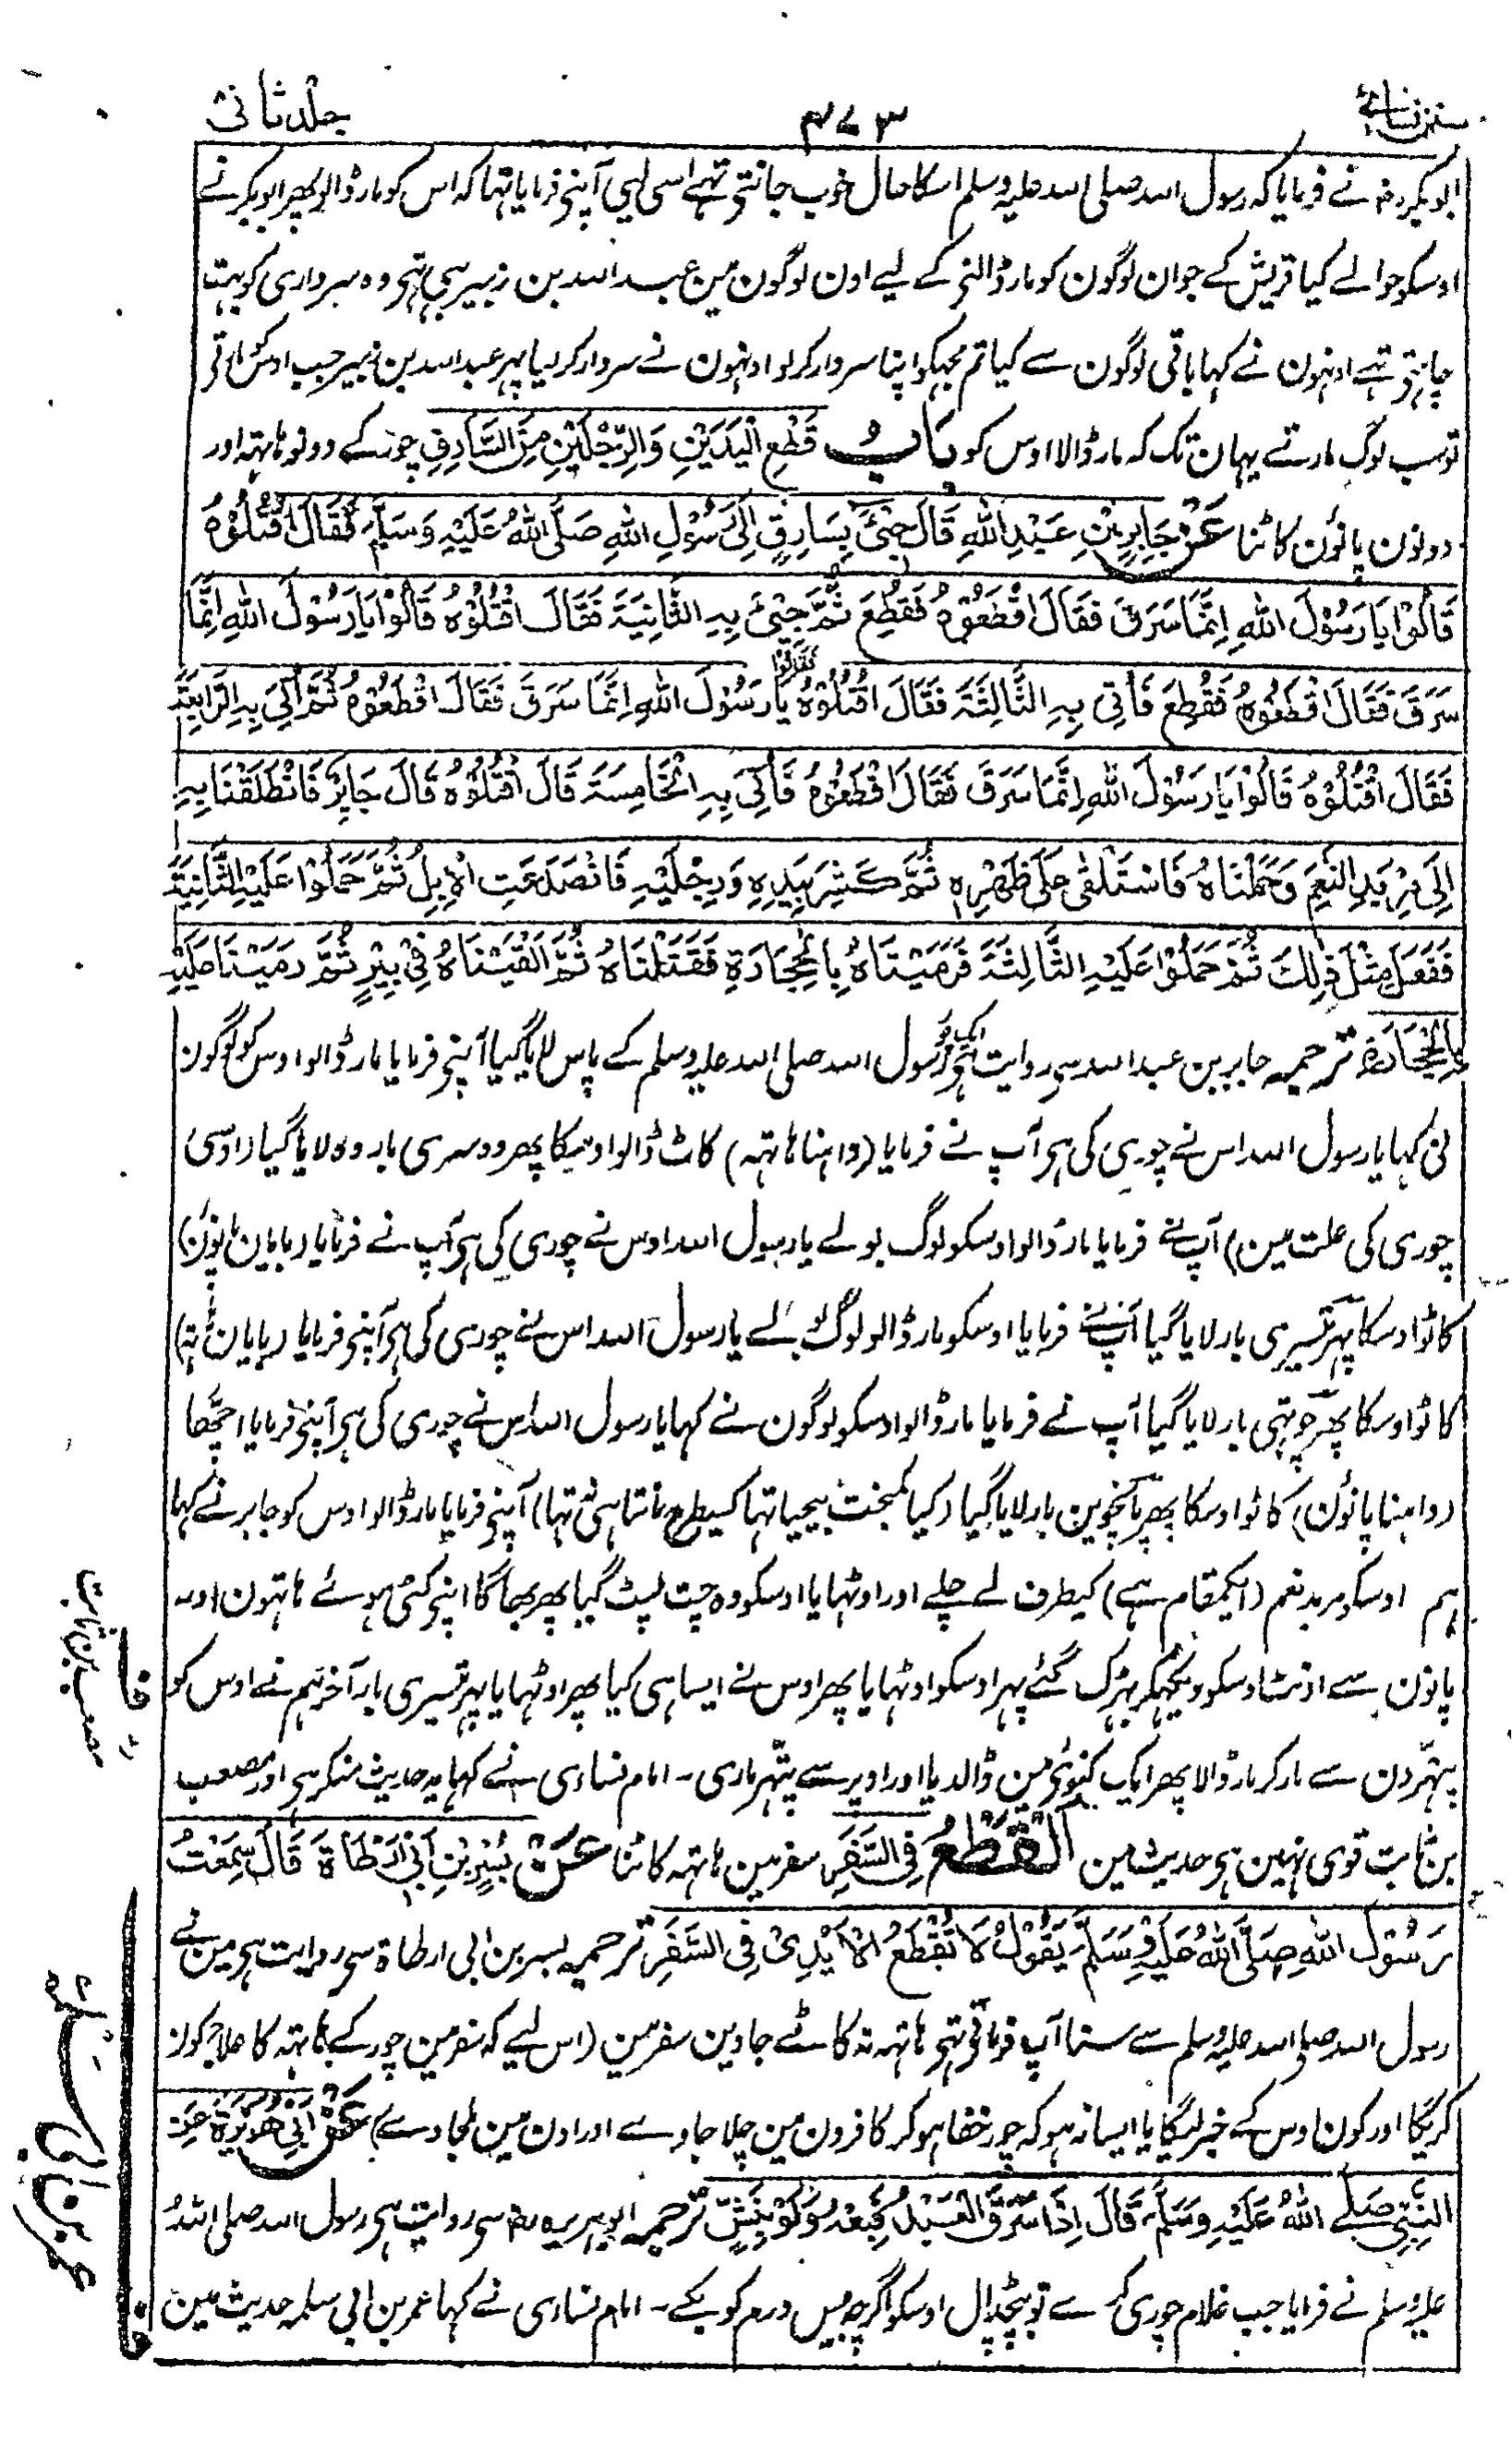 سنن نسائی
۳۷۳
جلد ثانی
ابوبکر رض نے فرمایا کہ رسول اللہ صلی اللہ علیہ وسلم اسکا حال خوب جانتی تہے اسی لیی آپنی فرمایا تہا کہ اس کو مار ڈالو پھر ابوبکر نے
اوسکو حوالے کیا قریش کے جوان لوگون کو مار ڈالنی کے لیے اون لوگون مین عبد اللہ بن زبیر بہی تہی وہ سرداری کو بہت
چاہتی تہے اونہون نے کہا باقی لوگون سے کیا تم مجہکو اپنا سردار کر لو اونہون نے سردار کر لیا پہر عبد اللہ بن زبیر جب اوسکو مارتی
تو سب لوگ مارتے یہان تک کہ مار ڈالا اوس کو باب قَطْعِ الْيَدَيْنِ وَالرِّجْلَيْنِ مِنَ السَّارِقِ چور کے دونو ہاتہہ اور
دونون پائون کاٹنا عَنْ جَابِرِ بْنِ عَبْدِ اللهِ قَالَ جِيْءَ بِسَارِقٍ اِلَى رَسُوْلِ اللهِ صَلَّى اللهُ عَلَيْهِ وَسَلَّمَ فَقَالَ اقْتُلُوْهُ
قَالُوْا يَا رَسُوْلَ اللهِ اِنَّمَا سَرَقَ فَقَالَ اقْطَعُوْهُ فَقُطِعَ ثُمَّ جِيْءَ بِهِ الثَّانِيَةَ فَقَالَ اقْتُلُوْهُ قَالُوْا يَا رَسُوْلَ اللهِ اِنَّمَا
سَرَقَ فَقَالَ اقْطَعُوْهُ فَقُطِعَ فَاُتِيَ بِهِ الثَّالِثَةَ فَقَالَ اقْتُلُوْهُ فَقَالُوْا يَا رَسُوْلَ اللهِ اِنَّمَا سَرَقَ فَقَالَ اقْطَعُوْهُ ثُمَّ اُتِيَ بِهِ الرَّابِعَةَ
فَقَالَ اقْتُلُوْهُ قَالُوْا يَا رَسُوْلَ اللهِ اِنَّمَا سَرَقَ فَقَالَ اقْطَعُوْهُ فَاُتِيَ بِهِ الْخَامِسَةَ قَالَ اقْتُلُوْهُ قَالَ جَابِرٌ فَانْطَلَقْنَا بِهِ
اِلَى مِرْبَدِ النَّعَمِ وَحَمَلْنَاهُ فَاسْتَلْقٰى عَلٰى ظَهْرِهٖ ثُمَّ كَشَرَ بِيَدِهِ وَرِجْلَيْهِ فَانْصَدَعَتِ الْاِبِلُ ثُمَّ حَمَلُوْا عَلَيْهِ الثَّانِيَةَ
فَفَعَلَ مِثْلَ ذٰلِكَ ثُمَّ حَمَلُوْا عَلَيْهِ الثَّالِثَةَ فَرَمَيْنَاهُ بِالْحِجَارَةِ فَقَتَلْنَاهُ ثُمَّ اَلْقَيْنَاهُ فِيْ بِيْرٍ ثُمَّ رَمَيْنَا عَلَيْهِ
بِالْحِجَارَةِ ترجمہ جابر بن عبد اللہ سی روایت ہی ایک چور رسول اللہ صلی اللہ علیہ وسلم کے پاس لایا گیا آپنی فرمایا مار ڈالو اوس کو لوگون
نی کہا یا رسول اللہ اس نے چوری کی ہی آپ نے فرمایا (داہنا ہاتہہ) کاٹ ڈالو اوسکا پھر دوسری بار وہ لایا گیا (اوسی
چوری کی علت مین) آپ نے فرمایا مار ڈالو اوسکو لوگ بولے یا رسول اللہ اوس نے چوری کی ہی آپ نے فرمایا (بایان پانون)
کاٹو اوسکا پہر تیسری بار لایا گیا آپ نے فرمایا اوسکو مار ڈالو لوگ بولے یا رسول اللہ اس نے چوری کی ہی آپنی فرمایا (بایان ہاتہ)
کاٹو اوسکا پھر چوتہی بار لایا گیا آپ نے فرمایا مار ڈالو اوسکو لوگون نے کہا یا رسول اللہ اس نے چوری کی ہی آپنی فرمایا اچھا
(داہنا پانون) کاٹو اوسکا پھر پانچوین بار لایا گیا (کیا کمبخت بیحیا تہا کسیطرح مانتا ہی نہ تہا) آپنی فرمایا مار ڈالو اوس کو جابر نے کہا
ہم اوسکو مربد نعم (ایکمقام ہے) کیطرف لے چلے اور اوٹہایا اوسکو وہ چت لیٹ گیا پھر بھاگا اپنی کٹی ہوئے ہاتہون اور
پانون سے اونٹ اوسکو دیکہکر بہڑک گئے پہر اوسکو اوٹہایا پھر اوس نے ایسا ہی کیا پھر اوٹہایا پہر تیسری بار آخر ہم نے اوس کو
پتہرون سے مار کر مار ڈالا پھر ایک کنوئی مین ڈالدیا اور اوپر سے پتہر ماری ۔ امام نسائی نے کہا یہ حدیث منکر ہی اور مصعب
بن ثابت قوی نہین ہی حدیث مین اَلْقَطْعُ فِي السَّفَرِ سفر مین ہاتہہ کاٹنا عَنْ بُسْرِ بْنِ اَبِيْ اَرْطَاةَ قَالَ سَمِعْتُ
رَسُوْلَ اللهِ صَلَّى اللهُ عَلَيْهِ وَسَلَّمَ يَقُوْلُ لَا تُقْطَعُ الْاَيْدِيْ فِي السَّفَرِ ترجمہ بسر بن ابی ارطاۃ سی روایت ہی مین نے
رسول اللہ صلی اللہ علیہ وسلم سے سنا آپ فرماتی تہی ہاتہہ نہ کاٹے جاوین سفر مین (اس لیے کہ سفر مین چور کے ہاتہہ کا علاج کون
کریگا اور کون اوس کے خبر لیگا یا ایسا نہ ہو کہ چور خفا ہو کر کافرون مین چلا جاوے اور اون مین ملجاوے) عَنْ اَبِيْ هُرَيْرَةَ عَنِ
النَّبِيِّ صَلَّى اللهُ عَلَيْهِ وَسَلَّمَ قَالَ اِذَا سَرَقَ الْعَبْدُ فَبِعْهُ وَلَوْ بِنَشٍّ ترجمہ ابوہریرہ رض سی روایت ہی رسول اللہ صلی اللہ
علیہ وسلم نے فرمایا جب غلام چوری کرے تو بیچڈال اوسکو اگرچہ بیس درم کو بکے ۔ امام نسائی نے کہا عمر بن ابی سلمہ حدیث مین
ف
مصعب بن ثابت
ف
عمر بن ابی سلمہ